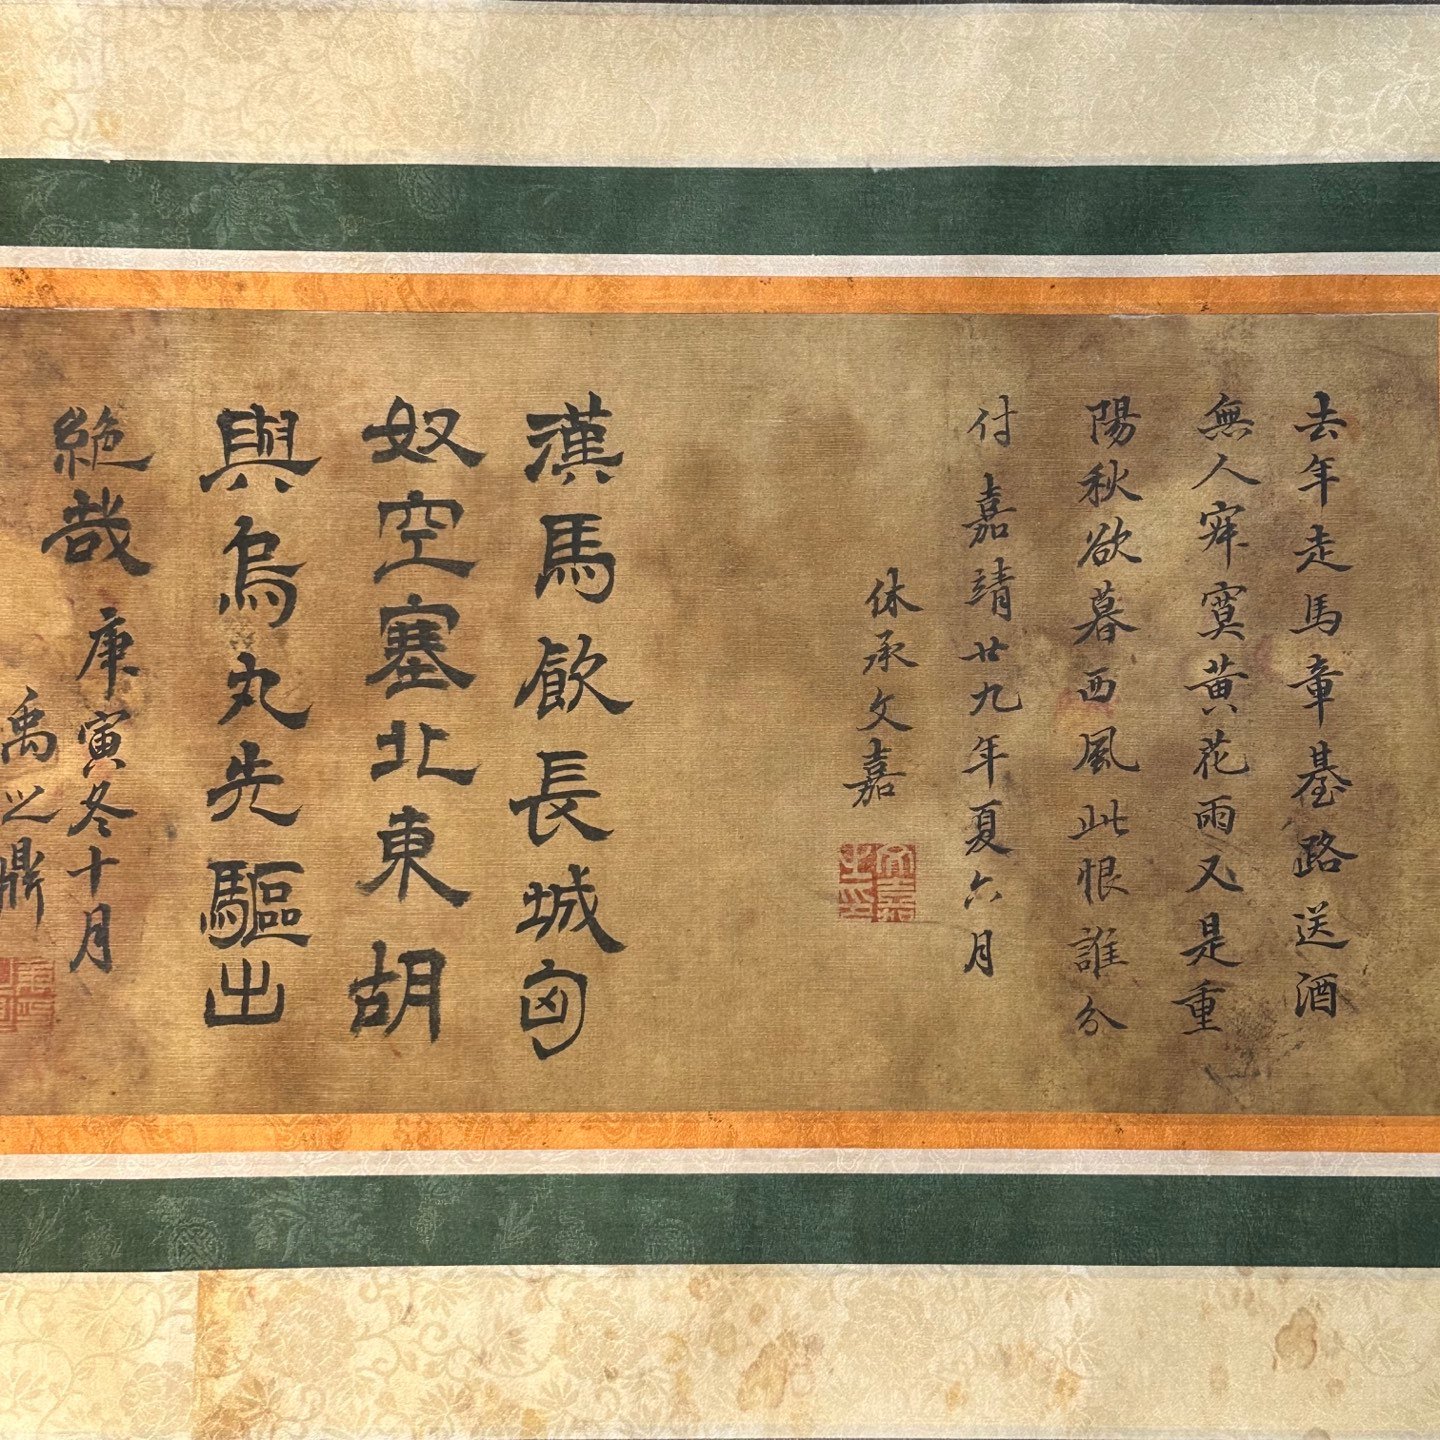 去年走馬章臺路送酒
無人寂寞黃花雨又是重
陽秋欲暮西風此恨誰分
付 嘉靖廿九年夏六月
休承文嘉
漢馬飲長城匈
奴空塞北東胡
與烏丸先驅出
絕哉 庚寅冬十月
禹之鼎